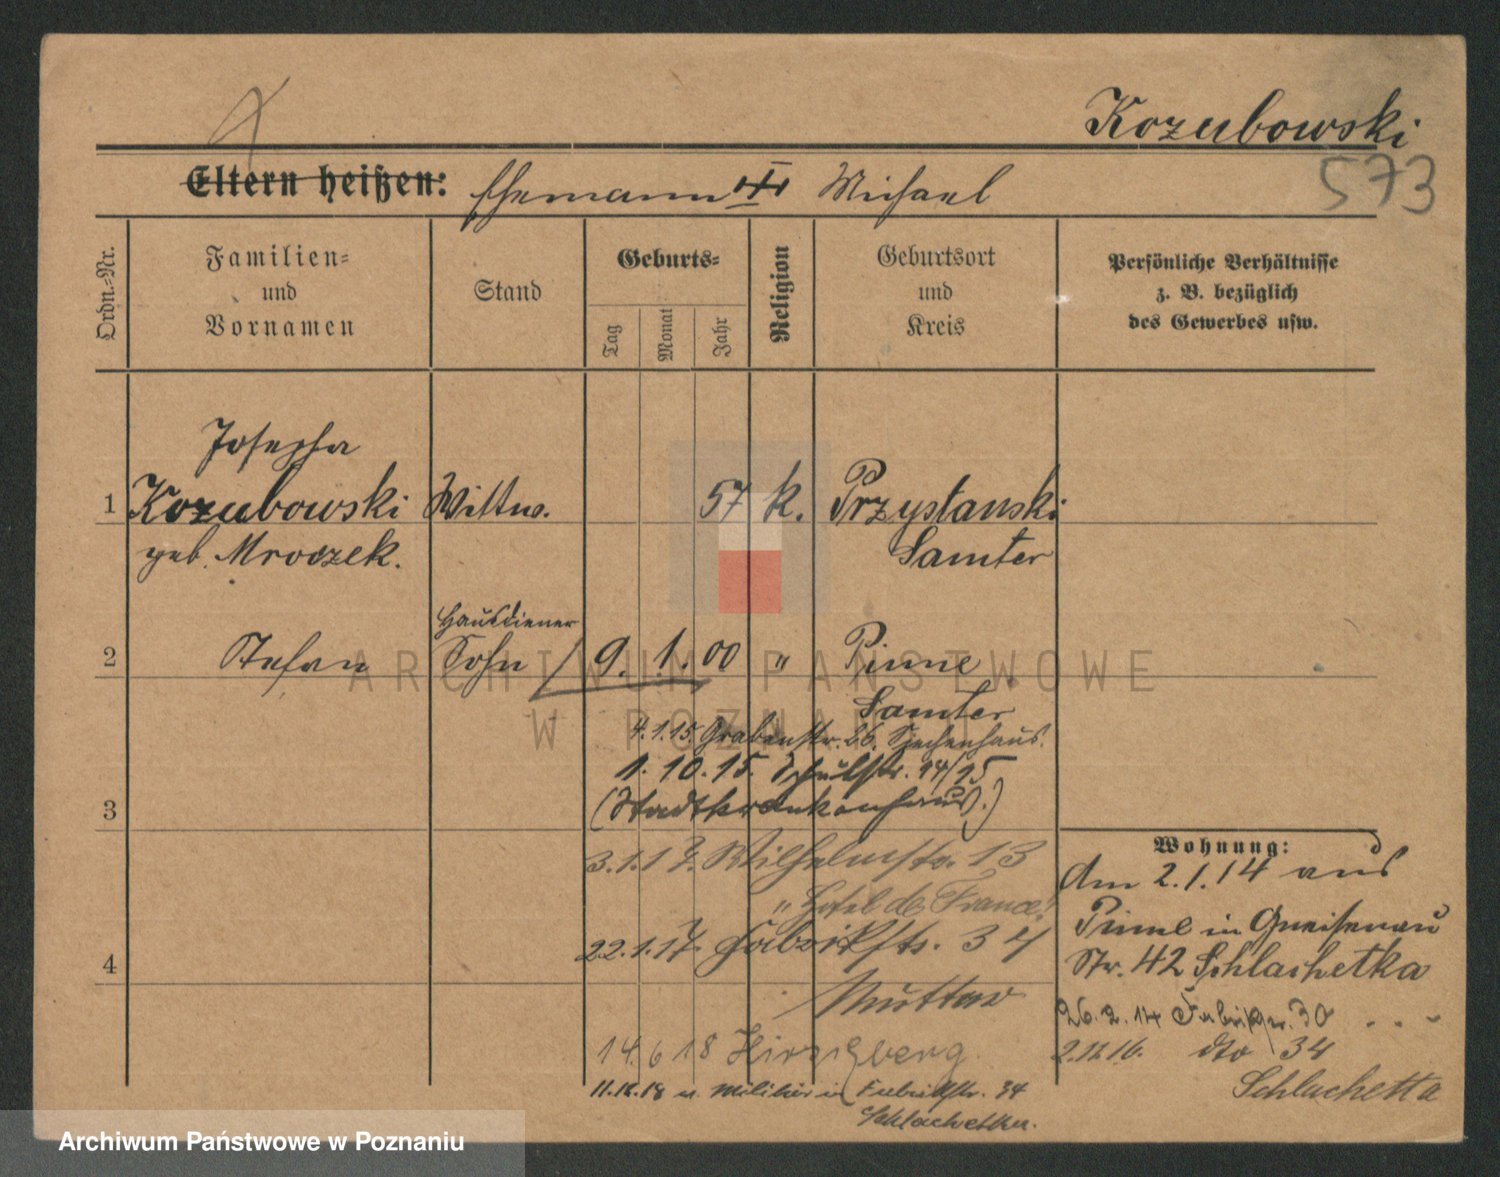 Kozubowski
573
Eltern heißen: Ehemann Michael
Ordn.-Nr.
Familien-
und
Vornamen
Stand
Geburts-
Tag
Monat
Jahr
Religion
Geburtsort
und
Kreis
Persönliche Verhältnisse
z. B. bezüglich
des Gewerbes usw.
Josepha
1 Kozubowski Wittw. 57 k. Przystanski
geb. Mroczek. Samter
Hausdiener
2 Stefan Sohn 9. 1. 00 " Pinne
Samter
4.1.15. Grabenstr. 26. Siechenhaus.
1.10.15. Schulstr. 14/15
3 (Stadtkrankenhaus.)
3.1.17. Wilhelmstr. 13
" Hotel de France.
4 22.1.17. Fabrikstr. 34
Mutter
14.6 18 Hirschberg
11.12.18 v. Militär in Fabrikstr. 34
Schlachetka.
Wohnung:
Am 2.1.14 aus
Pinne in Gneisenau
Str. 42 Schlachetka
26.2.14 Fabrikstr. 30
2.11.16. dto 34
Schlachetta
ARCHIWUM PAŃSTWOWE
W POZNANIU
Archiwum Państwowe w Poznaniu